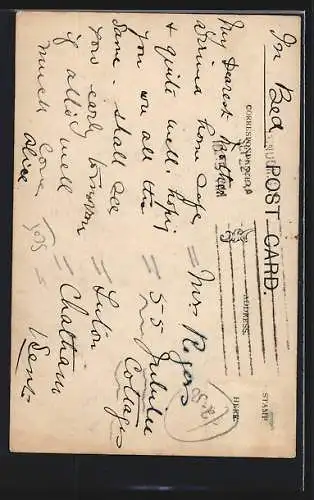 In Bed
POST CARD.
CORRESPONDENCE
ADDRESS.
STAMP
HERE.
My Dearest Mother
Arrived home safe
& quite well, hoping
you are all the
same. shall see
you early tomorrow
if all is well
much love
Alice
Mrs. Rogers
55 Jubilee
Cottages
Luton
Chatham
Kent